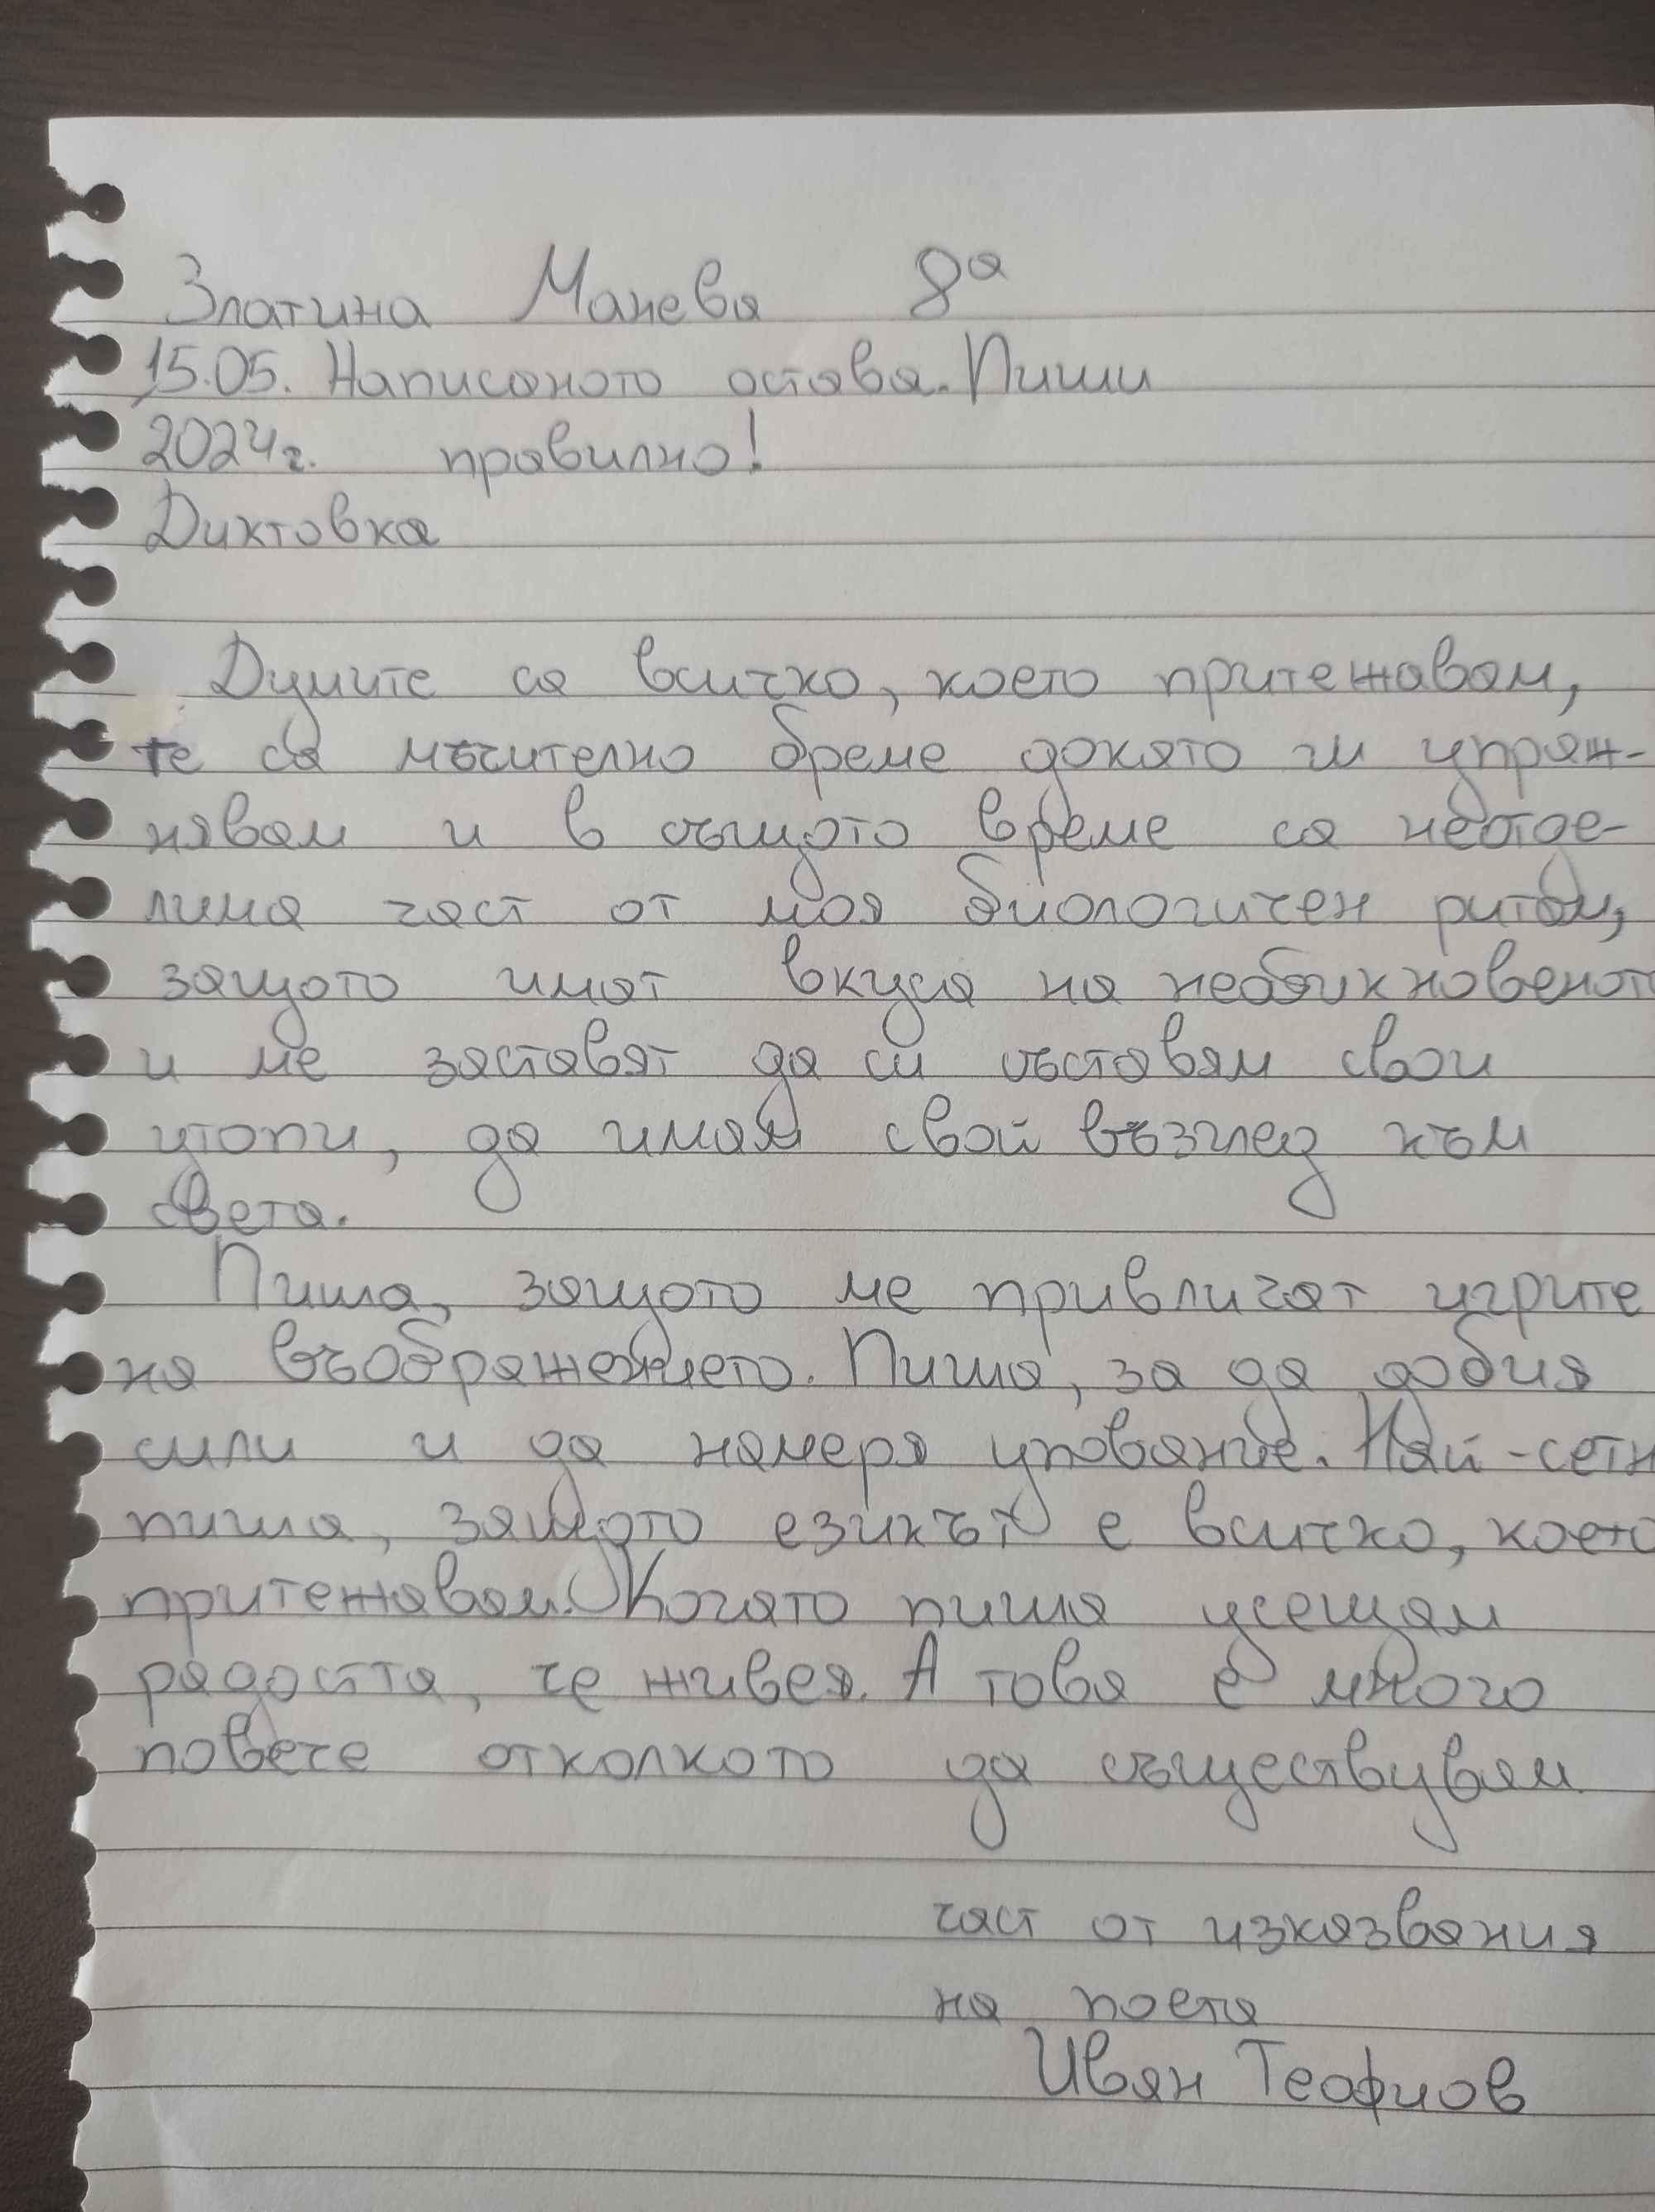 Златина Манева 8а
15.05. Написаното остава. Пиши
2024г. правилно!
Диктовка
Думите са всичко, което притежавам,
те са мъчително бреме докато ги упраж-
нявам и в същото време са неотде-
лима част от моя биологичен ритъм,
защото имат вкуса на необикновеното
и ме заставят да си съставям свои
утопи, да имам свой възглед към
света.
Пиша, защото ме привличат игрите
на въображението. Пиша, за да добия
сили и да намеря упование. Най-сетн
пиша, защото езикът е всичко, което
притежавам. Когато пиша усещам
радостта, че живея. А това е много
повече отколкото да съществувам
част от изказвания
на поета
Иван Теофилов